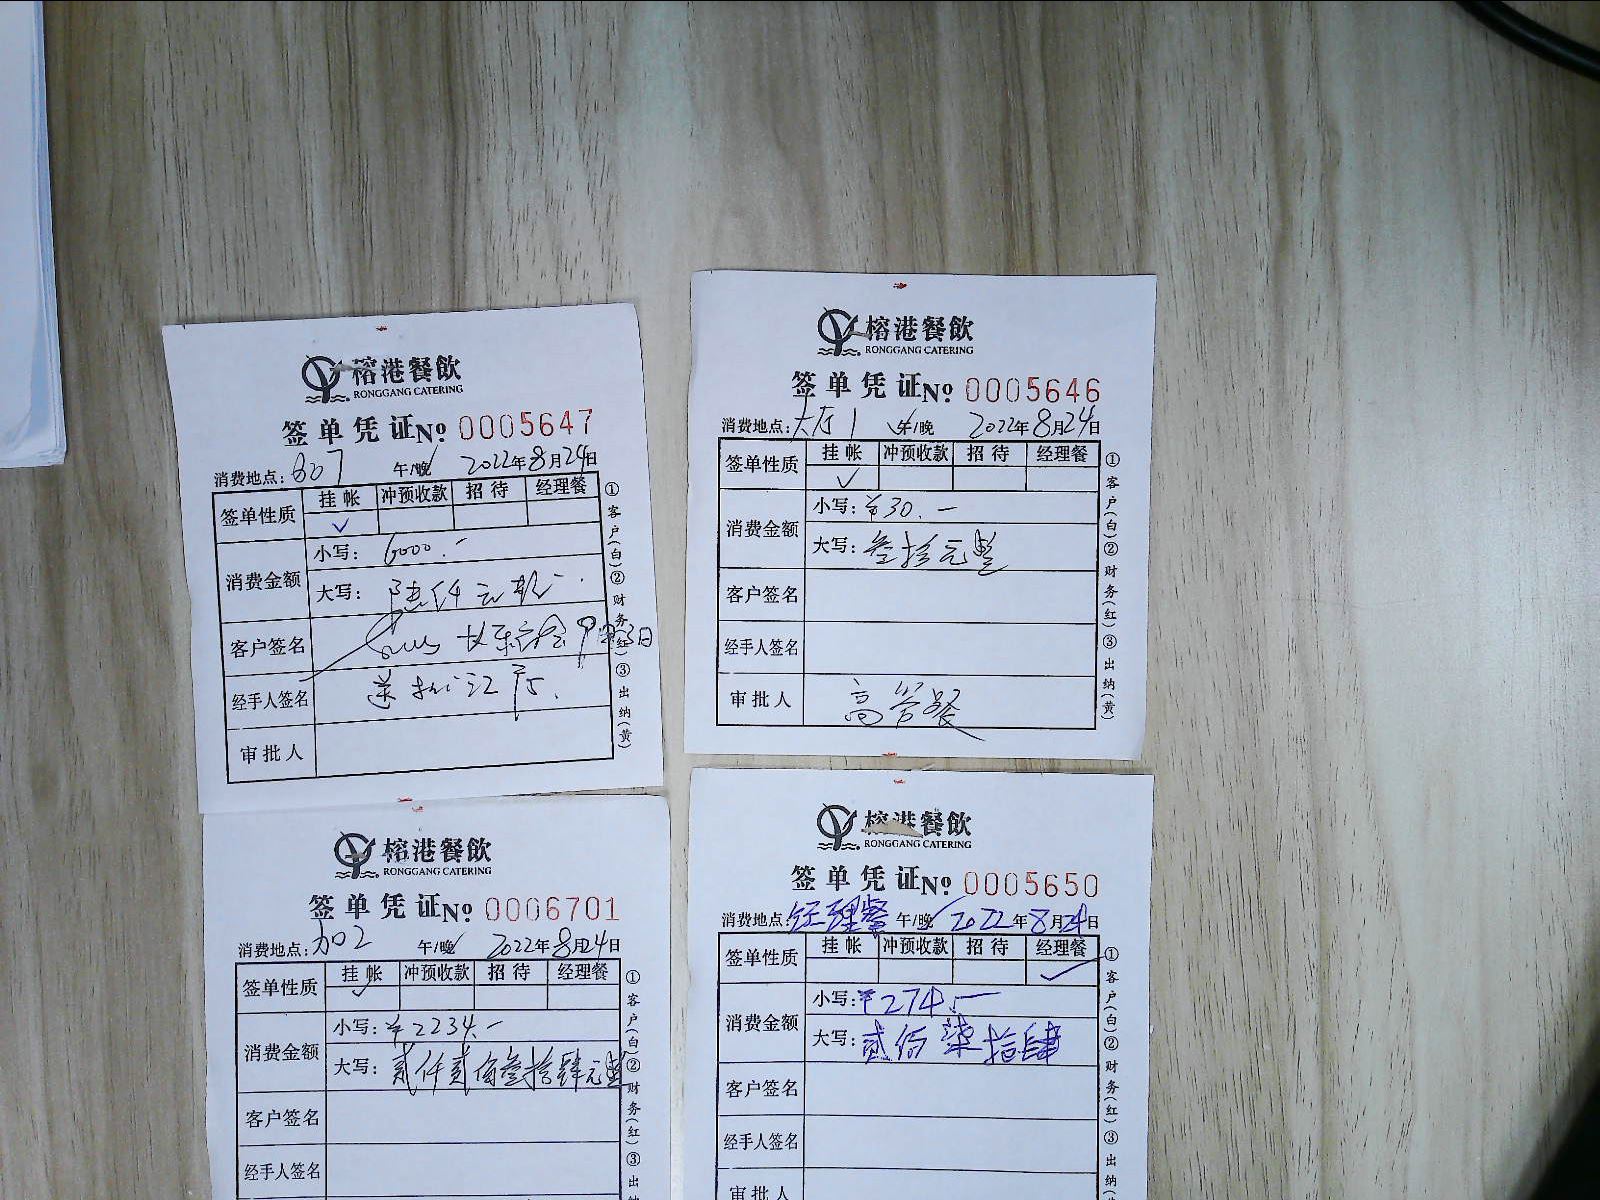 榕港餐飲
RONGGANG CATERING
签单凭证 № 0005647
消费地点: 807 午/晚 2022年8月24日
签单性质 挂帐 冲预收款 招待 经理餐
✓
消费金额
小写: 6000.-
大写: 陆仟元整
客户签名
经手人签名
审批人
①客户(白)②财务(红)③出纳(黄)
榕港餐飲
RONGGANG CATERING
签单凭证 № 0005646
消费地点: 大厅1 午/晚 2022年8月24日
签单性质 挂帐 冲预收款 招待 经理餐
✓
消费金额
小写: ¥30.-
大写: 叁拾元整
客户签名
经手人签名
审批人 高管餐
①客户(白)②财务(红)③出纳(黄)
榕港餐飲
RONGGANG CATERING
签单凭证 № 0006701
消费地点: 午/晚 2022年8月24日
签单性质 挂帐 冲预收款 招待 经理餐
✓
消费金额
小写: ¥2234.-
大写: 贰仟贰佰叁拾肆元整
客户签名
经手人签名
①客户(白)②财务(红)③出纳
榕港餐飲
RONGGANG CATERING
签单凭证 № 0005650
消费地点: 经理餐 午/晚 2022年8月24日
签单性质 挂帐 冲预收款 招待 经理餐
✓
消费金额
小写: ¥274.-
大写: 贰佰柒拾肆
客户签名
经手人签名
审批人
①客户(白)②财务(红)③出纳